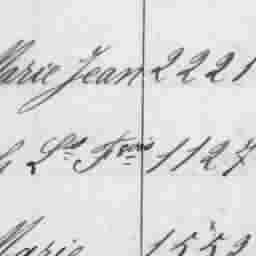 Marie Jean 2221
Ls Fcois 1127
Marie 1553